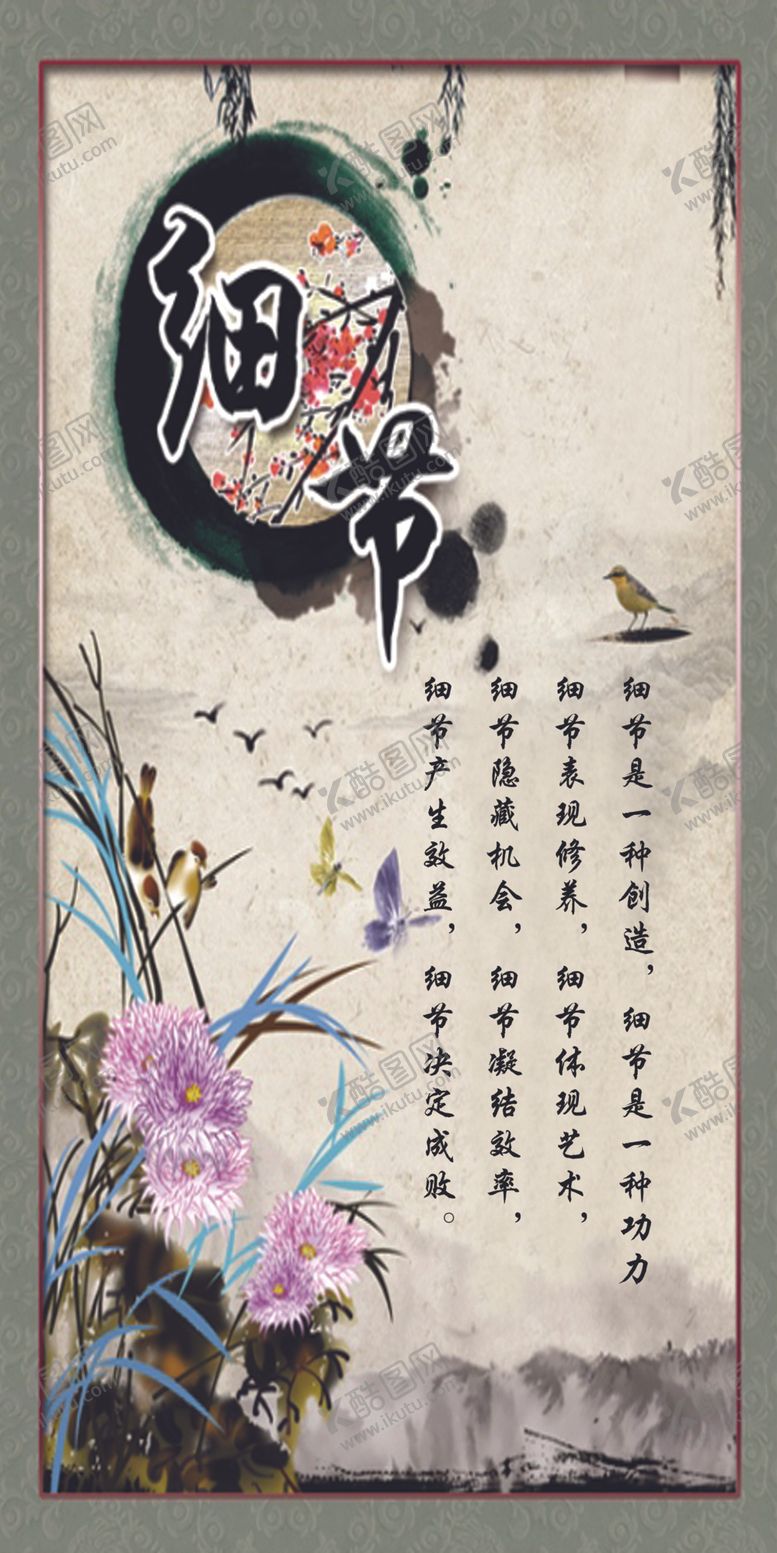 细节
细节是一种创造，细节是一种功力
细节表现修养，细节体现艺术，
细节隐藏机会，细节凝结效率，
细节产生效益，细节决定成败。
酷图网
www.ikutu.com